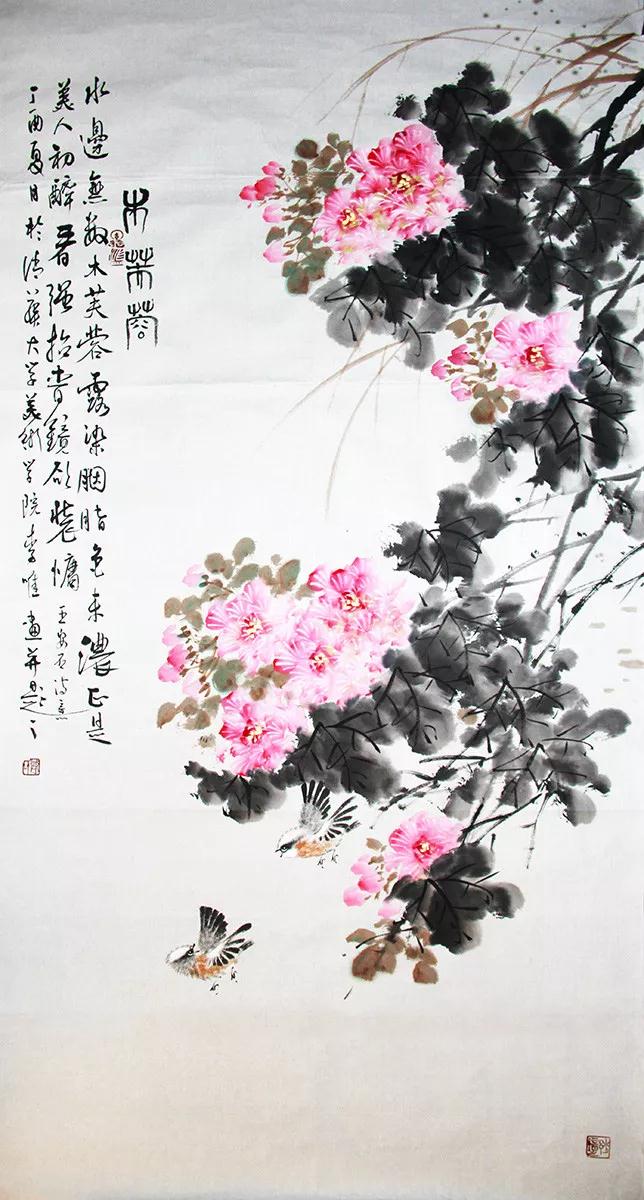 木芙蓉
水邊無數木芙蓉露染胭脂色未濃正是
美人初醉着强抬青鏡欲粧慵 王安石诗意
丁酉夏日於清華大学美術学院李唯畫并題